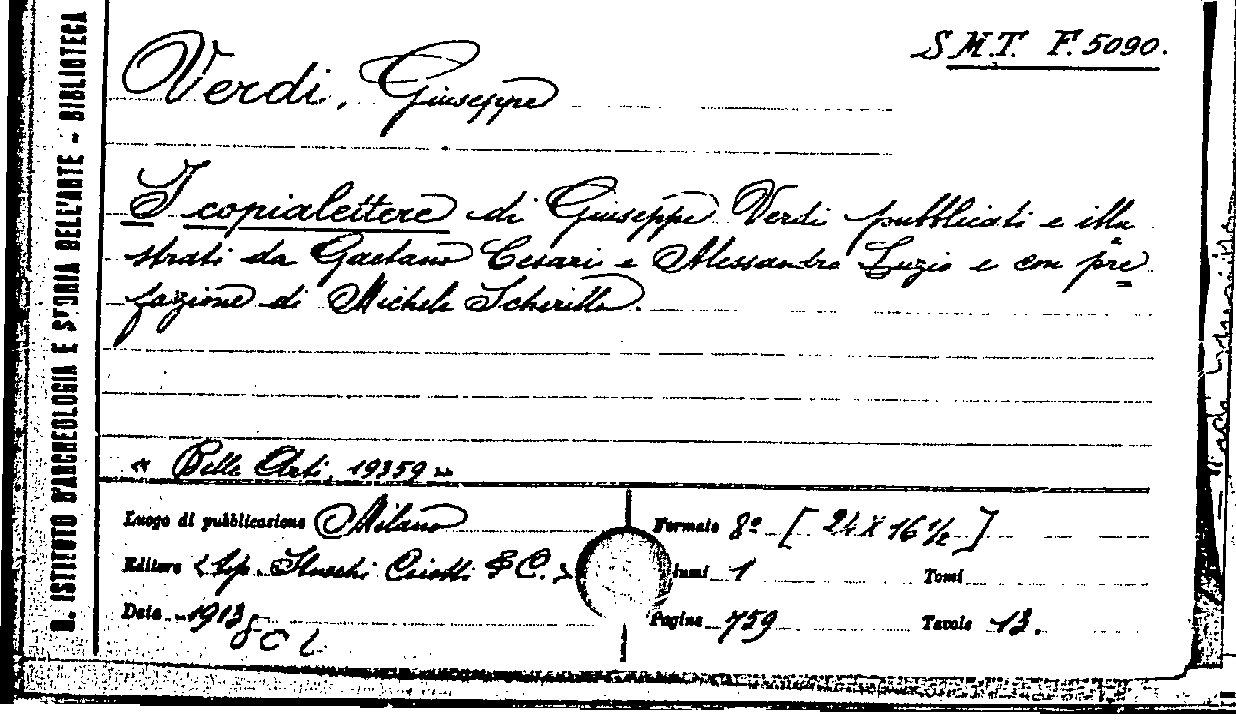 R. ISTITUTO D'ARCHEOLOGIA E STORIA DELL'ARTE - BIBLIOTECA
S.M.T. F. 5090.
Verdi, Giuseppe
I copialettere di Giuseppe Verdi pubblicati e illu
strati da Gaetano Cesari e Alessandro Luzio e con pre
fazione di Michele Scherillo.
« Belle Arti, 19359 »
Luogo di pubblicazione Milano Formato 8º [24 X 16 ½]
Editore <tip. Stucchi Ceretti & C.> lumi 1 Tomi
Data 1913 Pagine 759 Tavole 13.